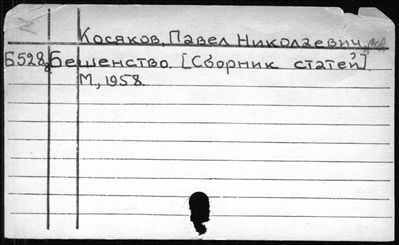 Косяков, Павел Николаевич,
Б528 Бешенство. [Сборник статей].
М, 1958.